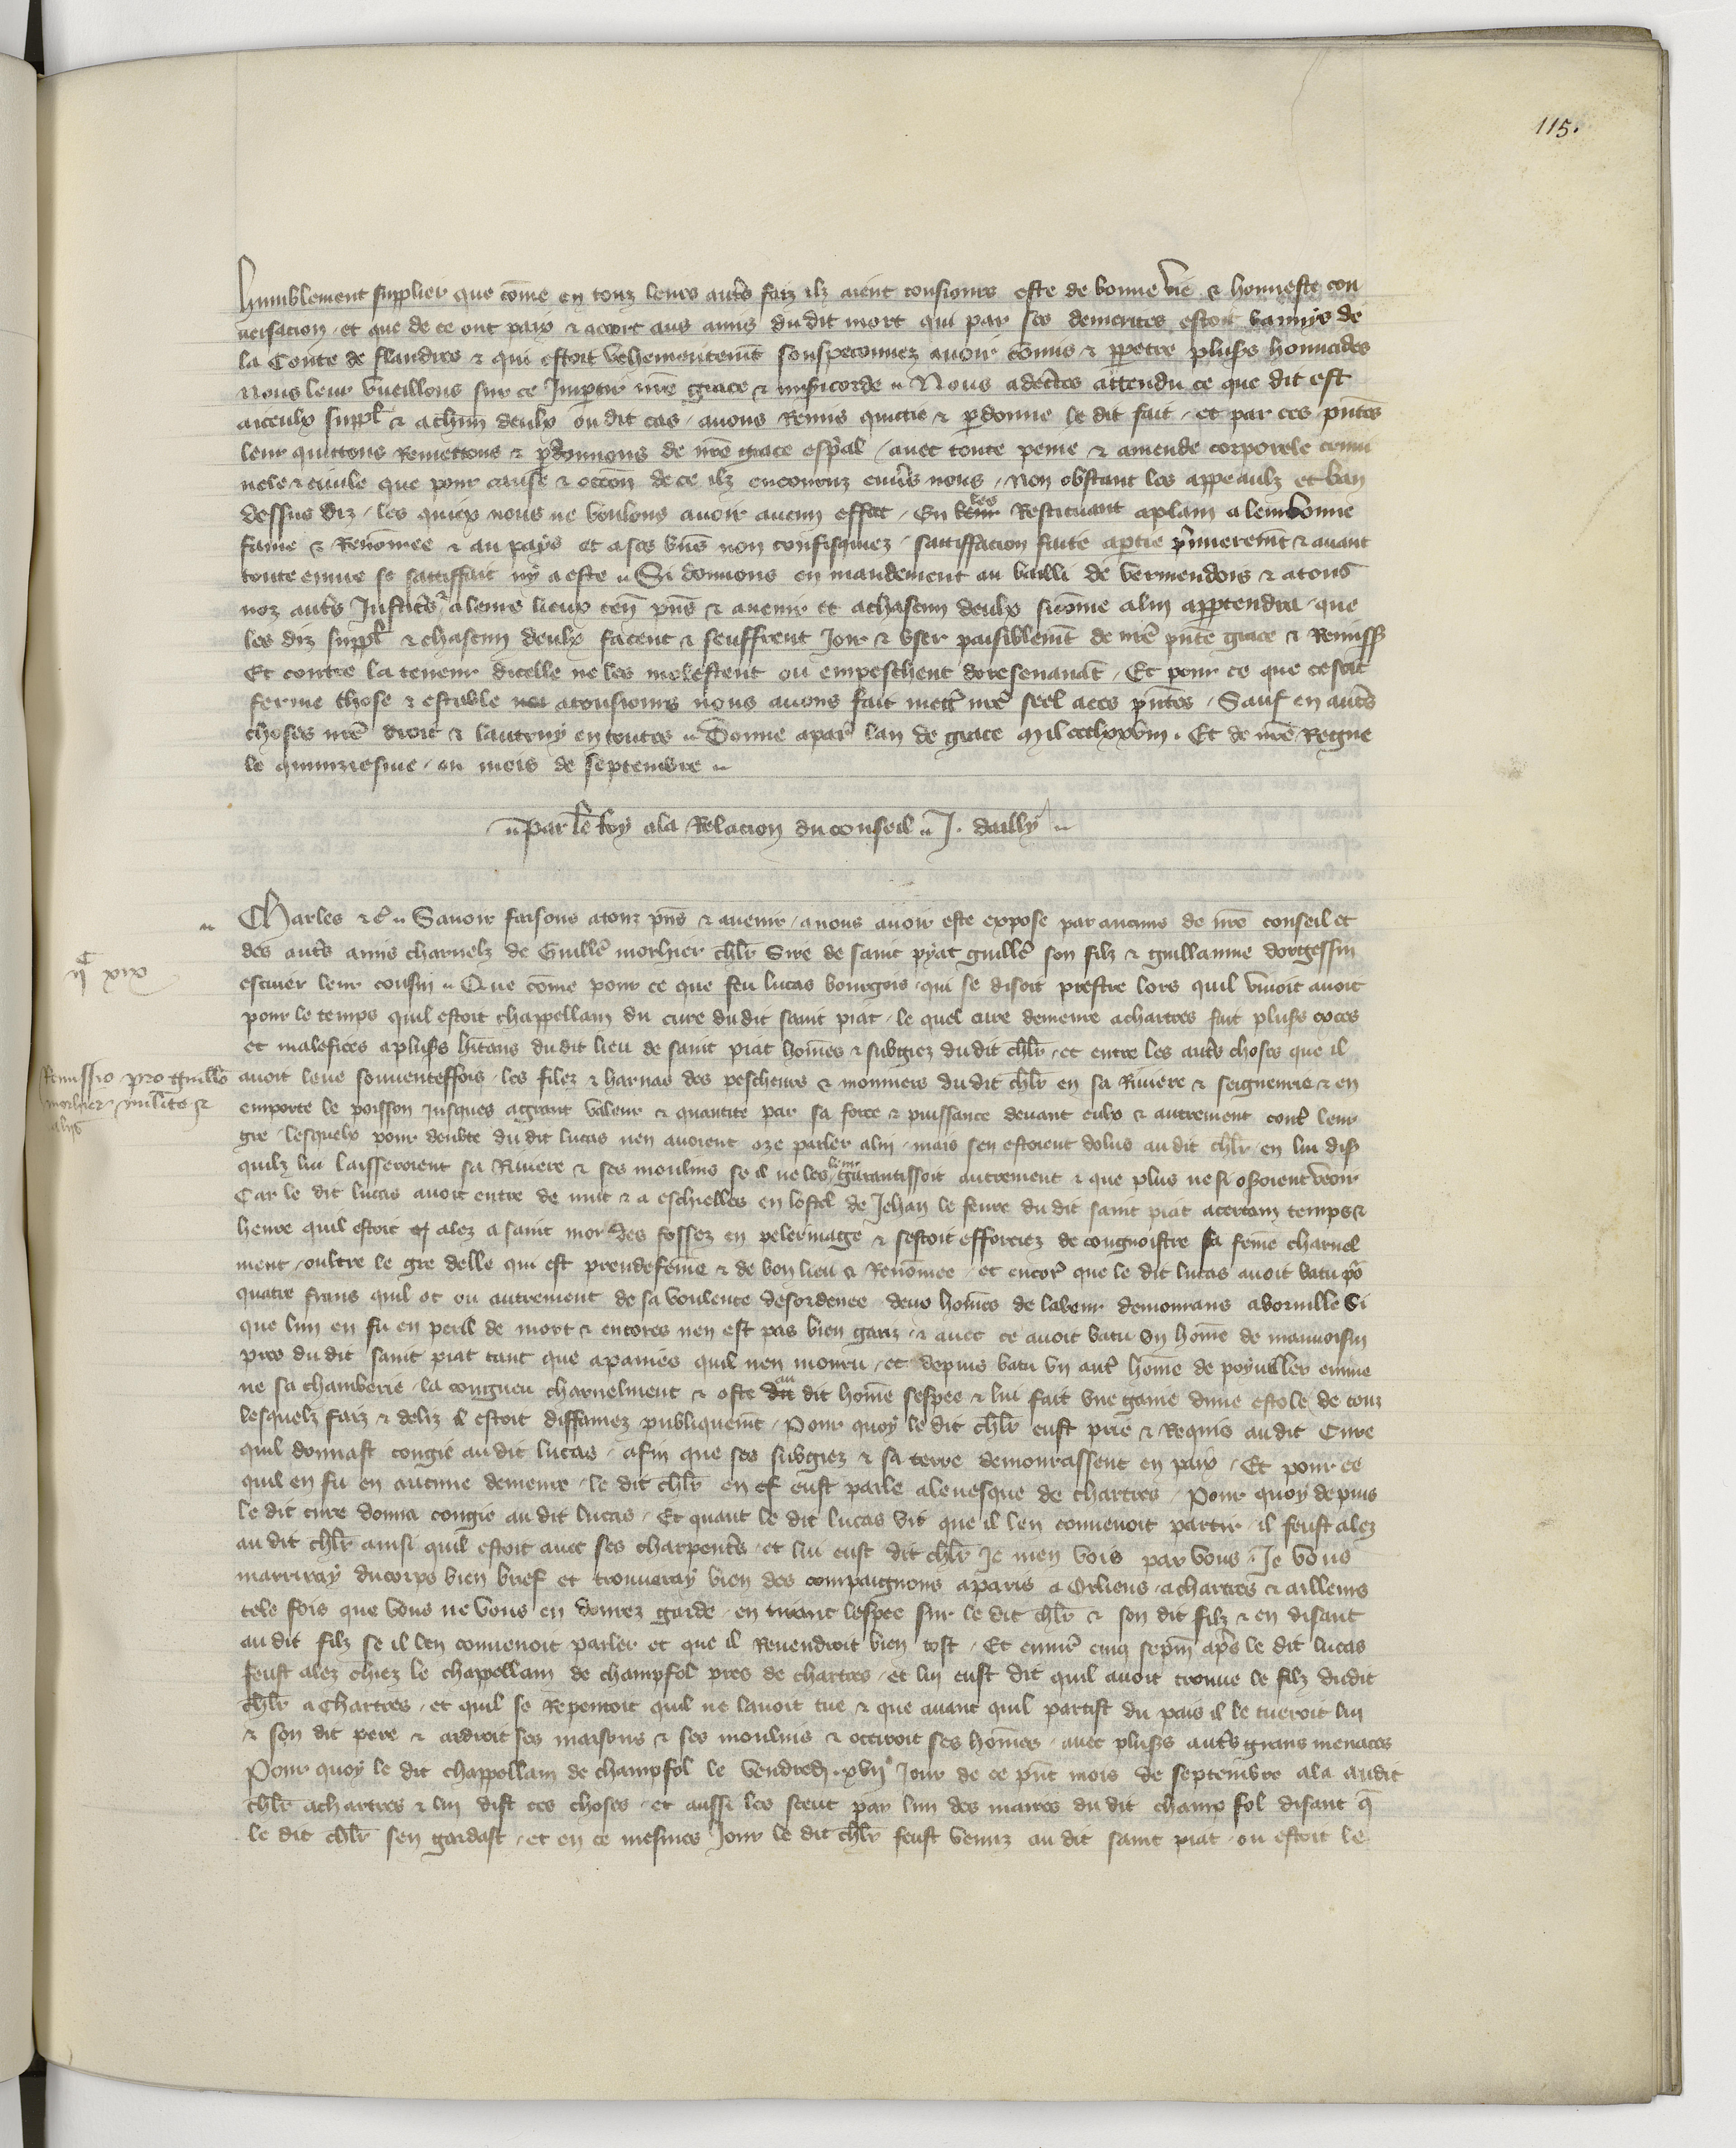 115.
humblement supplier que cõme en touz leurs autrẽs faiz ilz aient tousiours este de bonne vie & honneste con
uersacion . et que de ce ont paix & acort aus amis du dit mort qui par ses demerites estoit bannys de
la Conte de flandres & qui estoit vehementemẽt souspeconnez auoir cõmis & ppetre plusrs homicides
Nous leur vueillons sur ce Impartir nrẽ grace & misericorde .. Nous adecertes attendu ce que dit est
aiceulx suppl̃ & a chũn deulx ou dit cas . auons Remis quictie & pdonne le dit fait . et par ces pñtes
leur quittons Remettons & pdonnons de nrẽ grace espãl . auec toute peine & amende corporele crimi
nele & ciuile que pour cause & occõn de ce ilz encouruz enuẽrs nous . Non obstant les appeaulz et ban
dessus diz . les quiex nous ne voulons auoir aucun effect . En leur les Restituant aplain a leur bonne
fame & Renõmee & au pays et a ses bñs non confisquez . sattiffacion faite a ptie p̃mieremẽt & auant
toute euure se sattiffait ny a este .. Si donnons en mandement au bailli de vermendois & a tous
noz autrẽs Justicẽrs & a leurs lieux teñ pñs & auenir et a chascun deulx sicõme a lui appartendra . que
les diz suppl̃ & chascun deulx facent & seuffrent Joir & vser paisiblemẽt de nrẽ pñte grace & Remiss̃
Et contre la teneur dicelle ne les molestent ou empeschent doresenauãt . Et pour ce que ce soit
ferme chose & estable a tousiours nous auons fait mettrẽ nrẽ seel a ces pñtes . Sauf en autrẽs
choses nrẽ droit & lautruy en toutes .. Donne a parĩ lan de grace mil ccclxxviii . Et de nrẽ Regne
le quinziesme . ou mois de septembre ..
.. Par le Roy ala Relacion du conseil .. J. dailly ..
Charles &c̃ .. Sauoir faisons a touz pñs & auenir . a nous auoir este expose par aucuns de nrẽ conseil et
des autrẽs amis charnelz de Guillẽ morhier chlr̃ Sire de saint pyat guillẽ son filz & guillaume dorgessin
escuier leur cousin .. Que cõme pour ce que feu lucas bourgois . qui se disoit prestre lors quil viuoit auoit
pour le temps quil estoit chappellain du cure du dit saint piat . le quel cure demeure a chartres fait plusrs exces
et malefices a plusrs hĩtans du dit lieu de saint piat hom̃es & subgiez du dit chlr̃ . et entre les autrẽs choses que il
ij xix
Remissio pro Guillõ
morhier milite &
alijs
auoit leue souuenteffois . les filez & harnas des pescheurs & monniers du dit chlr̃ en sa Riuiere & seigneurie & en
emporte le poisson Jusques a grant valeur & quantite par sa force & puissance deuant eulx & autrement contrẽ leur
gre . lesquelx pour doubte du dit lucas nen auoient oze parler a lui . mais sen estoient dolus au dit chlr̃ . en lui dis̃
quilz lui laisseroient sa Riuiere & ses moulins se il ne les leur garantissoit autrement & que plus ne si osoient veoir
Car le dit lucas auoit entre de nuit & a eschielles en lostel de Jehan le feure du dit saint piat a certain temps &
heure quil estoit alez a saint mor des fossez en pelerinage & sestoit efforciez de congnoistre sa fem̃e charnel
ment . oultre le gre delle qui est preudefem̃e & de bon lieu & Renõmee . et encorẽ que le dit lucas auoit batu põ
quatre frans quil ot ou autrement de sa voulente desordenee . deux hom̃es de labeur demourans a boruille Si
que lun en fu en peril de mort & encores nen est pas bien gariz . & auec ce auoit batu vn hom̃e de mauuoisin
pres du dit saint piat tant que a paines quil nen mouru . et depuis batu vn autrẽ hom̃e de poyuiller emme
ne sa chamberie . la congneu charnelment & oste au dit hom̃e sespee & lui fait vne gaine dune estole de touz
lesquelz faiz & deliz il estoit diffamez publiquemẽt . Pour quoy le dit chlr̃ eust prie & Requis au dit Cure
quil donnast congie au dit lucas . afin que ses subgiez & sa terre demourassent en paix . Et pour ce
quil en fu en aucune demeure . le dit chlr̃ en eust parle a leuesque de chartres . Pour quoy depuis
le dit cure donna congie au dit lucas . Et quant le dit lucas vit que il len conuenoit partir . il feust alez
au dit chlr̃ ainsi quil estoit auec ses charpentẽrs . et lui eust dit chlr̃ Je men vois par vous . Je vous
marriray du corps bien brief et trouueray bien des compaignons a paris a Orliens . a chartres & ailleurs
tele fois que vous ne vous en donrez garde . en traiant lespee sur le dit chlr̃ & son dit filz & en disant
au dit filz se il len conuenoit parler et que il Reuendroit bien tost . Et enuirõ cinq sepm̃ aprẽs le dit lucas
feust alez chiez le chappellain de champfol pres de chartres . et lui eust dit quil auoit trouue le filz du dit
chlr̃ a Chartres . et quil se Repentoit quil ne lauoit tue & que auant quil partist du pais il le tueroit lui
& son dit pere & ardroit ses maisons & ses moulins & occiroit ses hom̃es . auec plusrs autrẽs grans menaces
Pour quoy le dit chappellain de champfol le vendredi . xvijᵉ Jour de ce pñt mois de septembre ala au dit
chlr̃ a chartres & lui dist ces choses . et aussi les sceut par lun des maires du dit champ fol disant q̃
le dit chlr̃ sen gardast . et en ce mesmes Jour le dit chlr̃ feust venuz au dit saint piat . ou estoit le